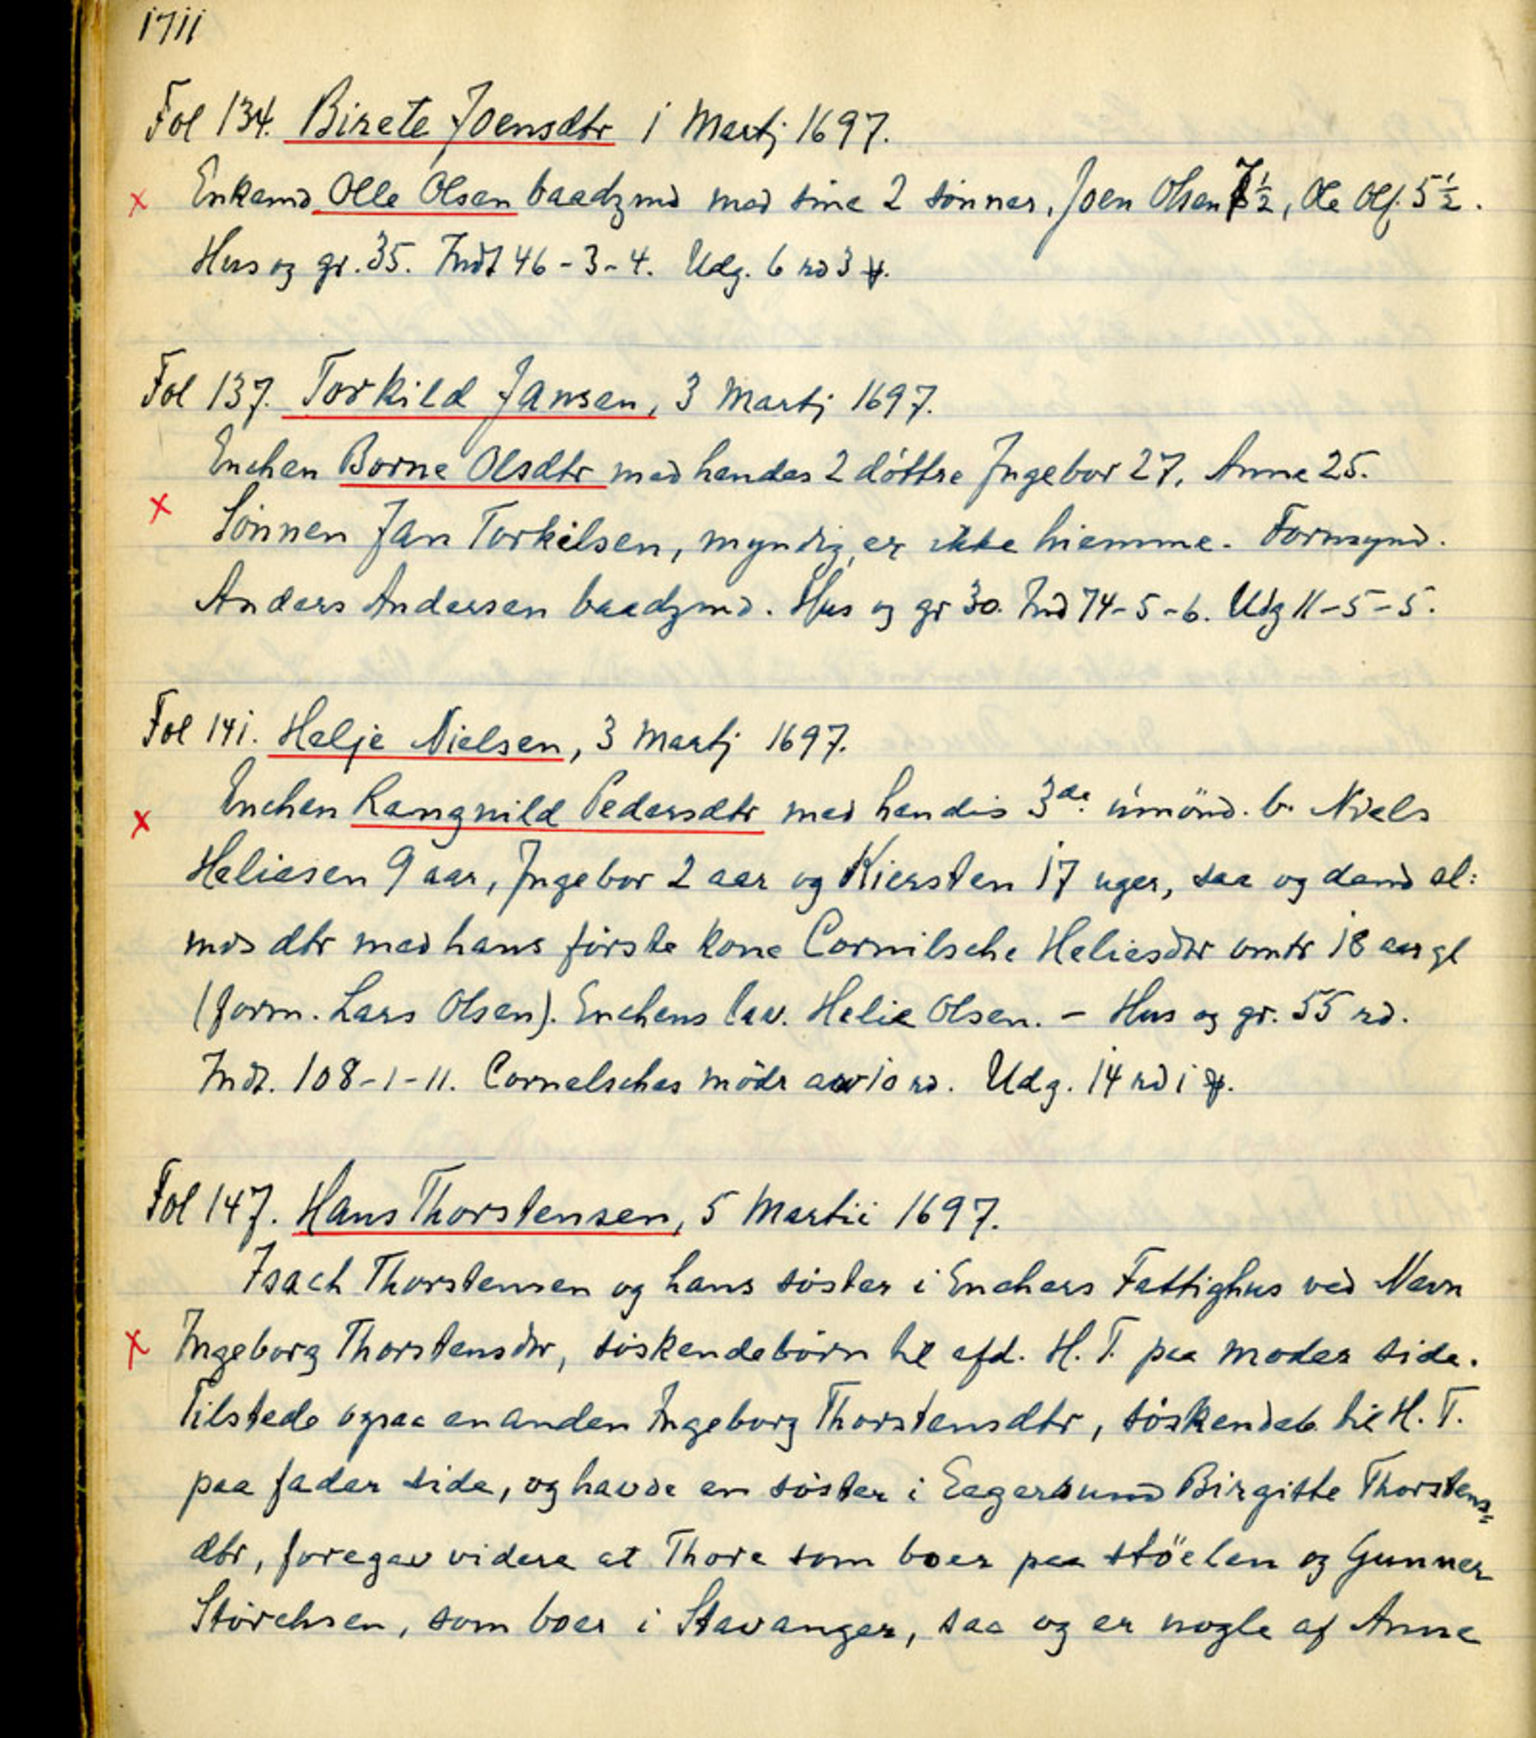 1711
Fol 134. Birete Joensdtr 1 Martj 1697.
x Enkemd Olle Olsen baadzmd med sine 2 sönner, Joen Olsen 7½, Ole Ols. 5½.
Hus og gr. 35. Indt 46-3-4. Udg. 6 rd 3
Fol 137. Torkild Jansen, 3 Martj 1697.
Enchen Borne Olsdtr med hendes 2 döttre Ingebor 27, Anne 25.
x Sönnen Jan Torkilsen, myndig, er ikke hiemme. Formynd.
Anders Andersen baadzmd. Hus og gr 30. Ind 74-5-6. Udg 11-5-5.
Fol 141. Helje Nielsen, 3 Martj 1697.
x Enchen Rangnild Pedersdtr med hendis 3de umönd. b. Niels
Heliesen 9 aar, Ingebor 2 aar og Kiersten 17 uger, saa og dend sl:
mds dtr med hans förste kone Cornilsche Heliesdtr omtr 18 aar gl
(form. Lars Olsen). Enchens lav. Helie Olsen. - Hus og gr. 55 rd.
Indt. 108-1-11. Cornelsches mödr arv 10 rd. Udg. 14 rd 1
Fol 147. Hans Thorstensen, 5 Martii 1697.
Isach Thorstensen og hans söster i Enchers Fattighus ved Navn
x Ingeborg Thorstensdtr, söskendebörn til afd. H. T. paa moder side.
Tilstede ogsaa en anden Ingeborg Thorstensdtr, söskendeb. til H. T.
paa fader side, og havde en söster i Eegersund Birgitte Thorstens=
dtr, foregav videre at Thore som boer paa stöelen og Gunner
Störchsen, som boer i Stavanger, saa og er nogle af Anne